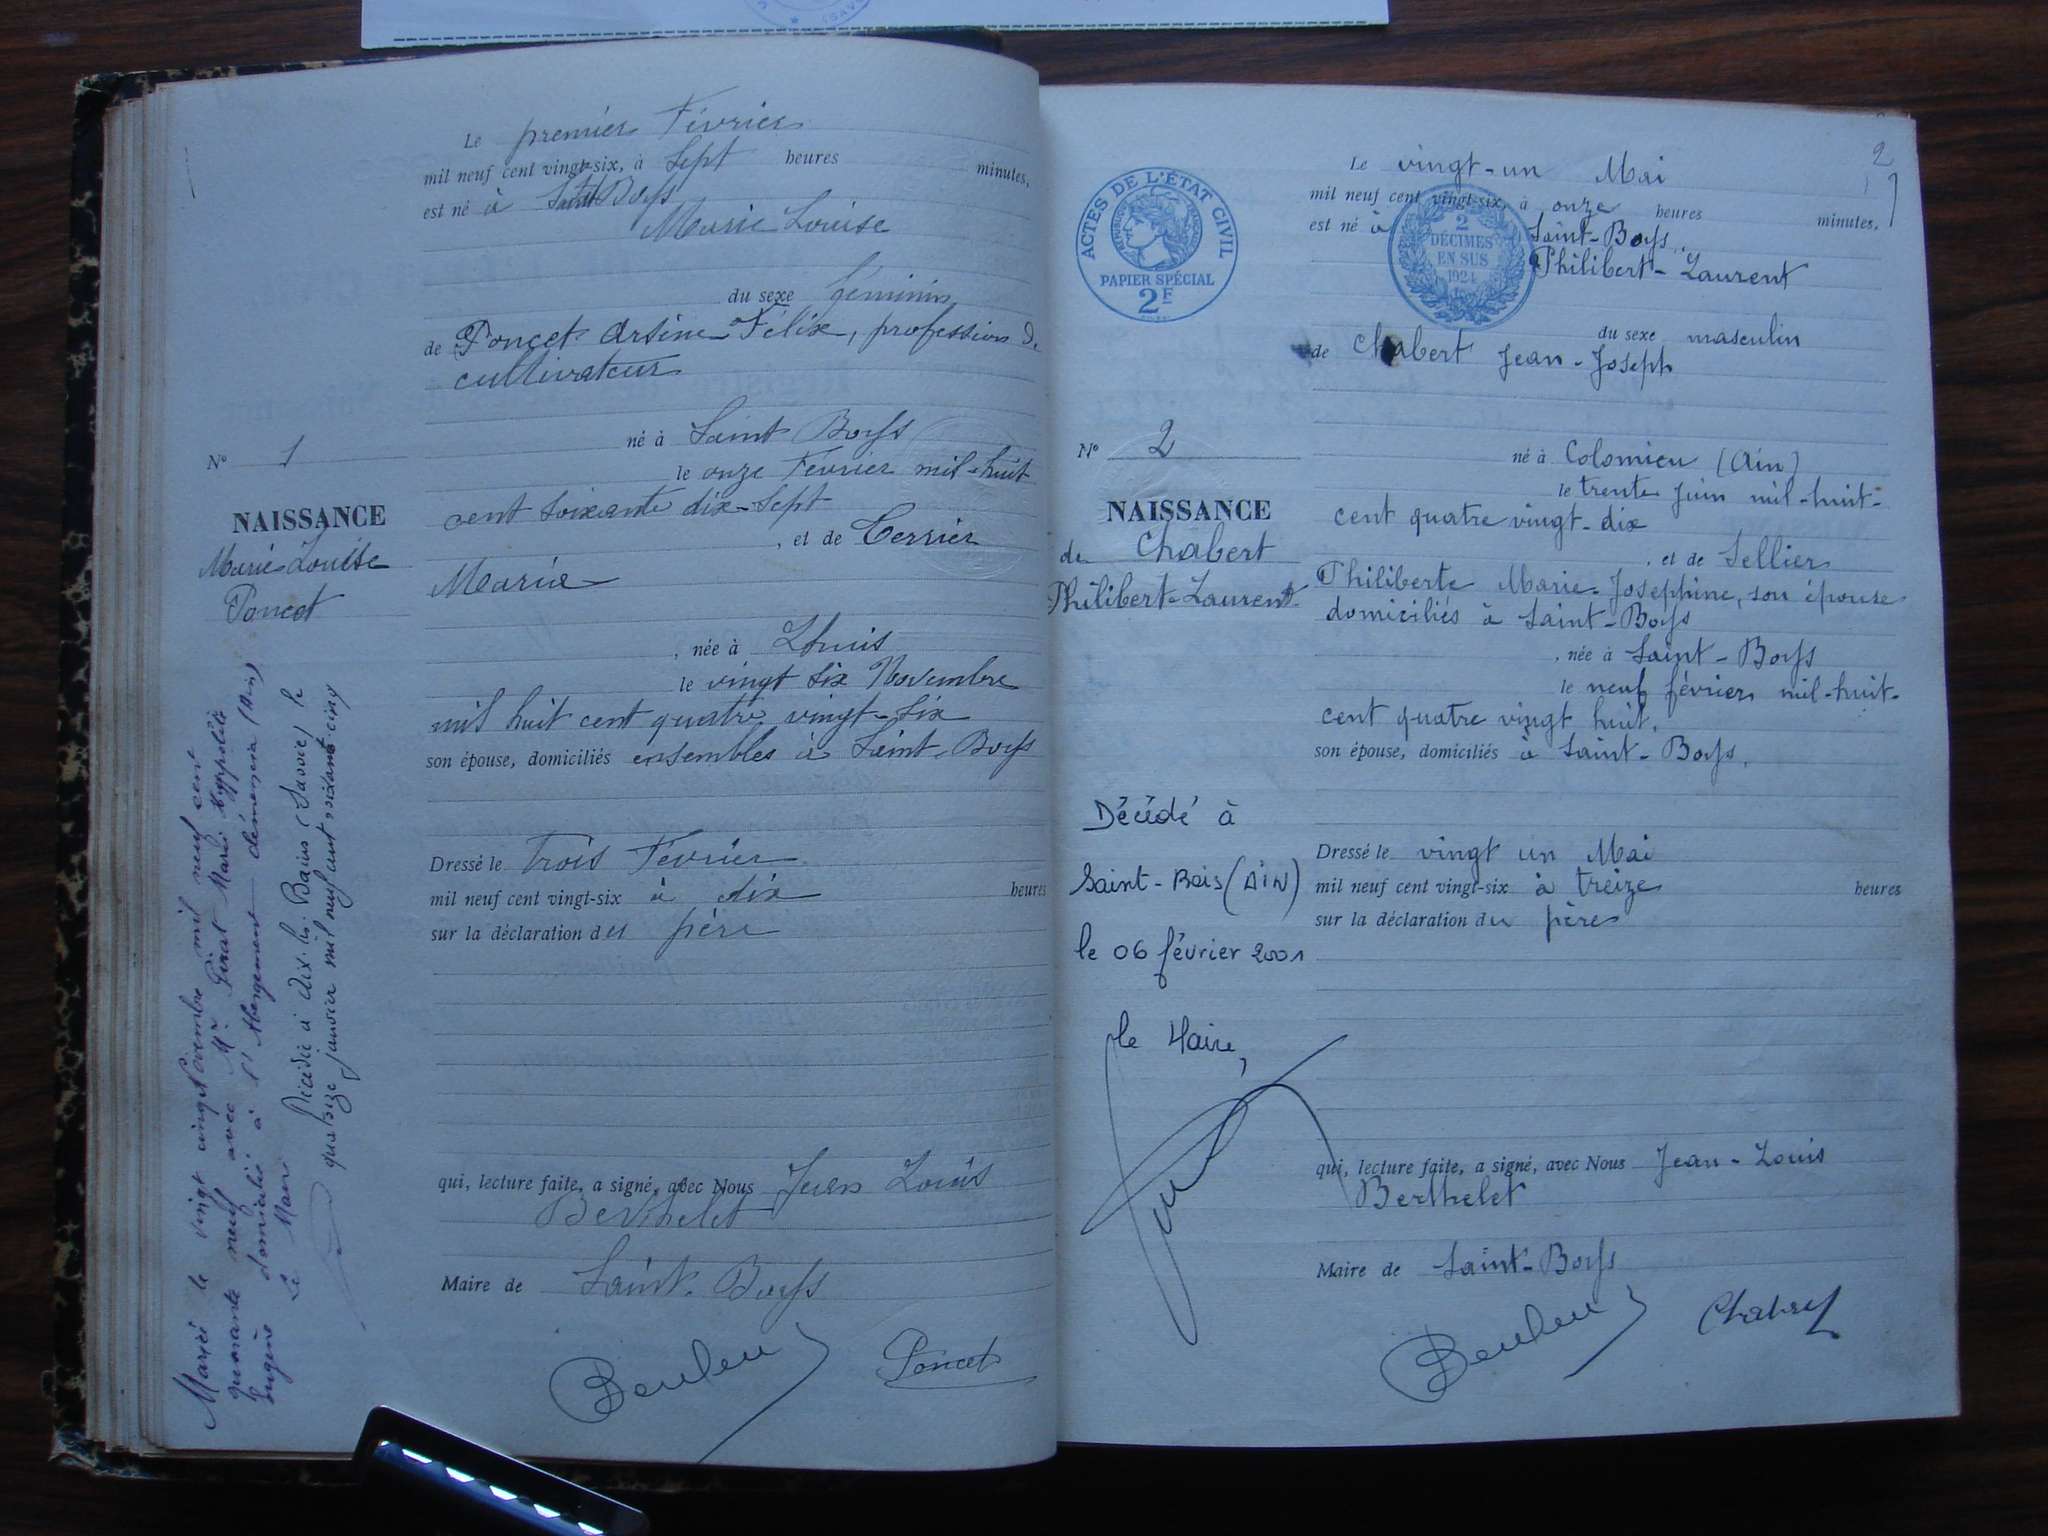 Le premier Février
mil neuf cent vingt-six, à Sept heures minutes,
est né à Saint Boys
Marie Louise
du sexe féminin
de Poncet Arsène-Félix, profession de
cultivateur
né à Saint Boys
N° 1
le onze Février mil-huit
cent soixante dix-sept
NAISSANCE
, et de Terrier
Marie Louise
Maria
Poncet
, née à Lhuis
le vingt six Novembre
mil huit cent quatre vingt-six
son épouse, domiciliés ensembles à Saint-Boys
Dressé le trois Février
mil neuf cent vingt-six à dix heures
sur la déclaration du père
qui, lecture faite, a signé, avec Nous Jean Louis
Berthelet
Maire de Saint-Boys
Poncet
Marié le vingt cinq Novembre mil neuf cent
quarante neuf avec Mr Pirat Marie Hyppolite
Eugène domicilié à l'Abergement-clémencia (Ain)
Le Maire
Décédée à Aix-les-Bains (Savoie) le
quatorze janvier mil neuf cent soixante cinq
2
Le vingt-un Mai
mil neuf cent vingt-six, à onze heures minutes,
est né à Saint-Boys,
Philibert-Laurent
ACTES DE L'ÉTAT CIVIL
PAPIER SPÉCIAL
2F
2
DÉCIMES
EN SUS
1924
du sexe masculin
de Chabert Jean-Joseph
N° 2
né à Colomieu (Ain)
le trente Juin mil-huit-
cent quatre vingt-dix
NAISSANCE
de Chabert
Philibert-Laurent
, et de Sellier
Philiberte Marie-Josephine, son épouse
domiciliés à Saint-Boys
, née à Saint-Boys
le neuf février mil-huit-
cent quatre vingt huit.
son épouse, domiciliés à Saint-Boys,
Décédé à
Saint-Bois (AIN)
le 06 février 2001
le Maire,
Dressé le vingt un Mai
mil neuf cent vingt-six à treize heures
sur la déclaration du père
qui, lecture faite, a signé, avec Nous Jean-Louis
Berthelet
Maire de Saint-Boys
Chabert